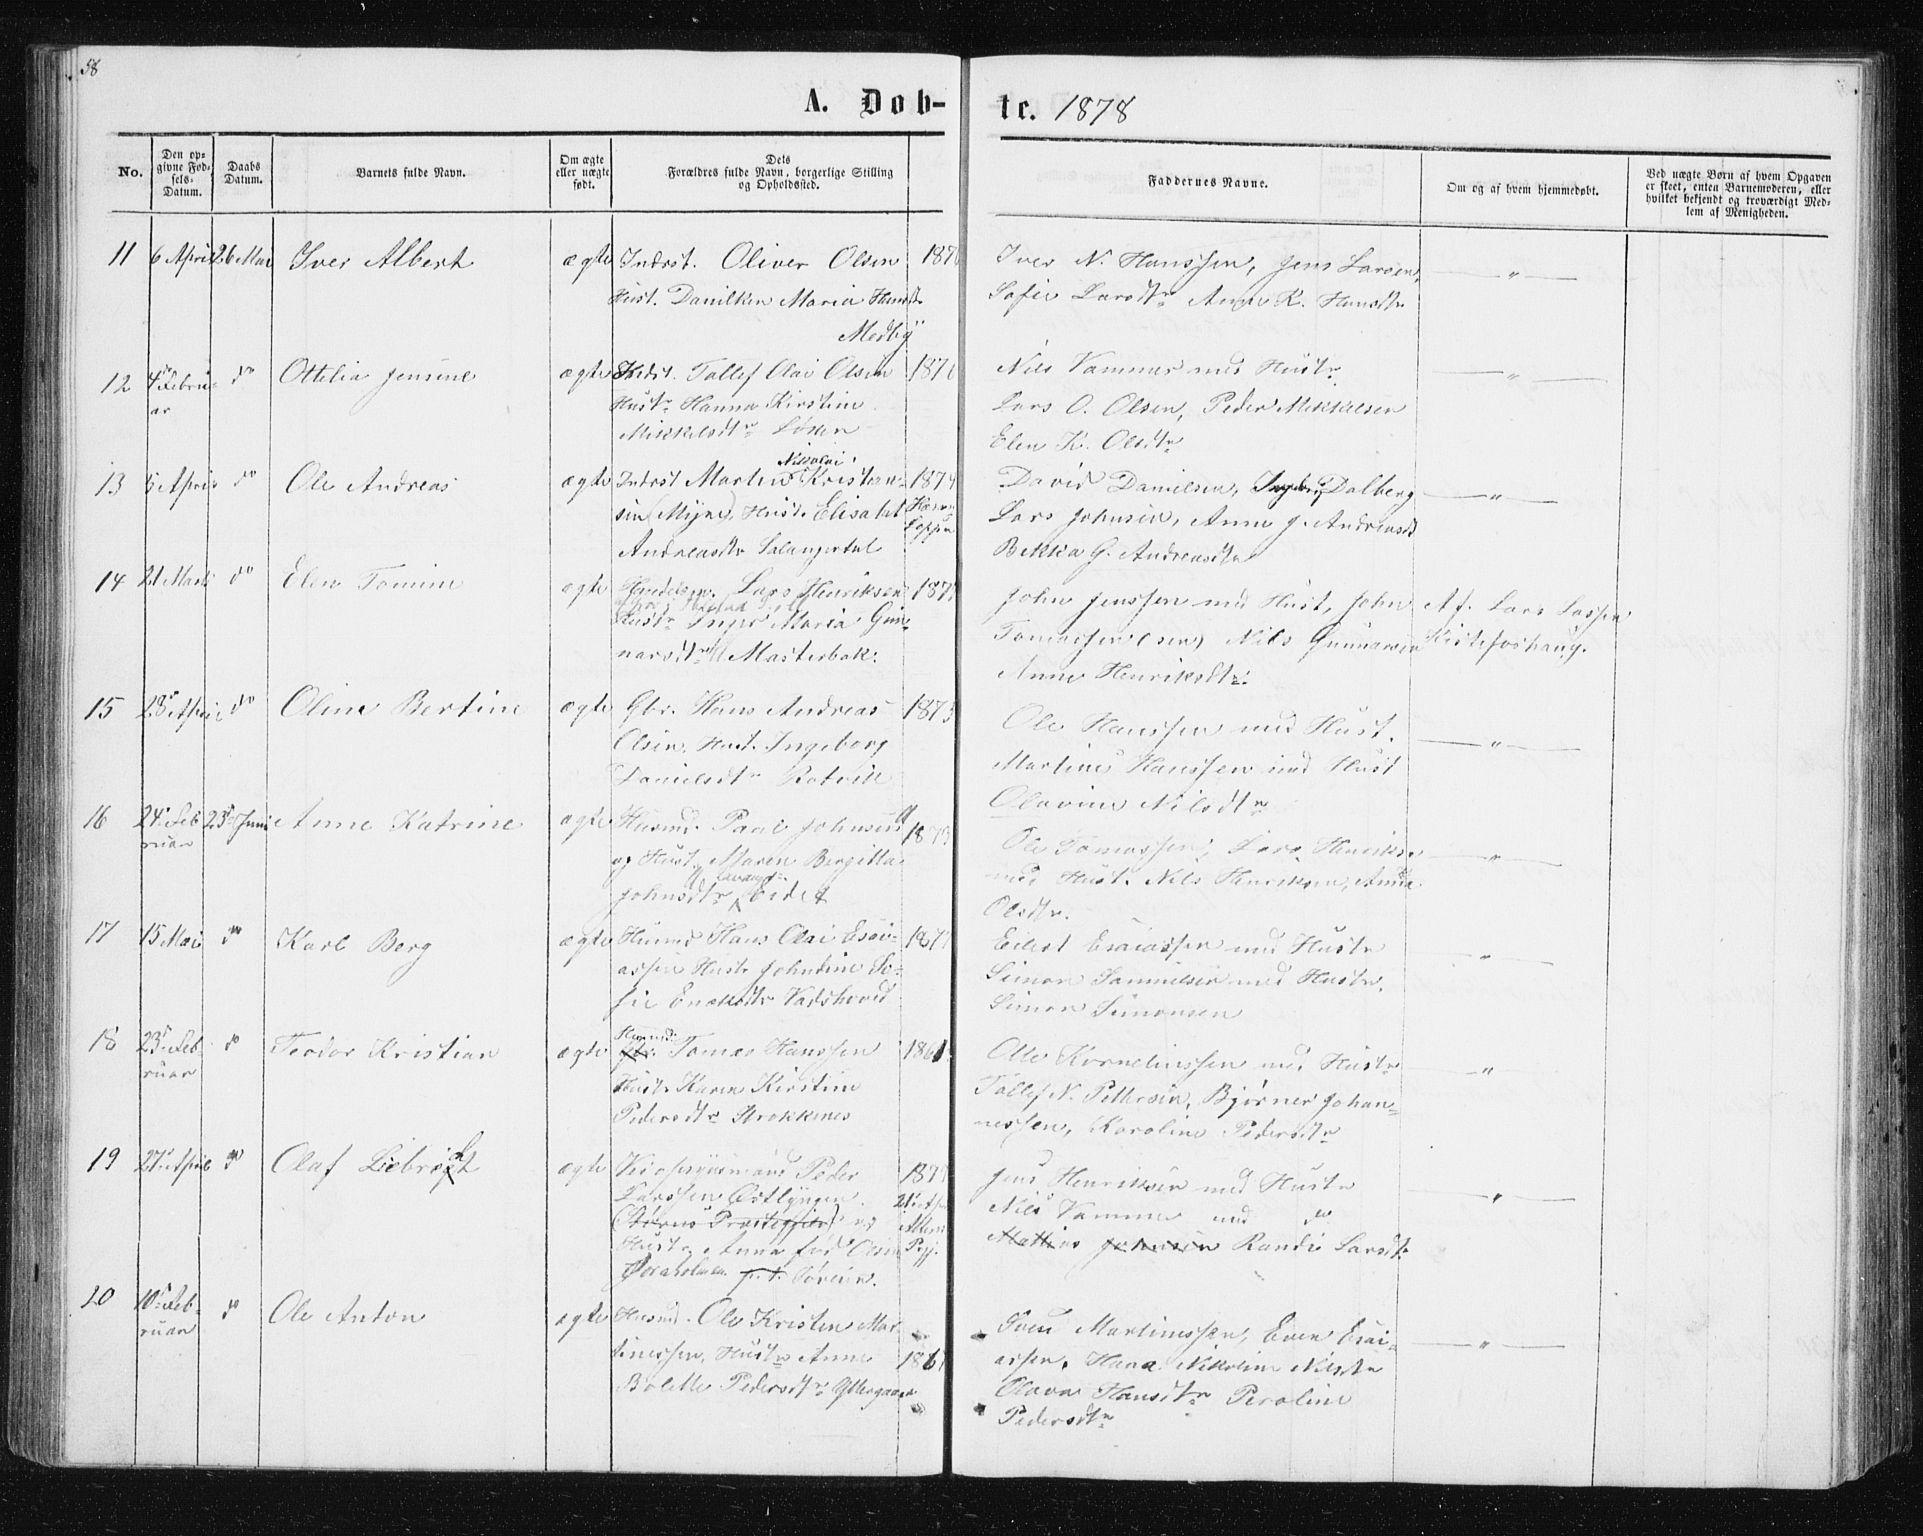 58
A. Døb-
te. 1878
No.
Den op-
givne Fød-
sels-
Datum.
Daabs
Datum.
Barnets fulde Navn.
Om ægte
eller uægte
født.
Dets
Forældres fulde Navn, borgerlige Stilling
og Opholdssted.
Faddernes Navne.
Om og af hvem hjemmedøbt.
Ved uægte Børn af hvem Opgaven
er skeet, enten Barnemoderen, eller
hvilket bekjendt og troværdigt Med-
lem af Menigheden.
11 6 April 26 Mai Iver Albert ægte Indrst. Oliver Olsen
Hust. Danilken Maria Hansdtr
Medby
Iver N. Hanssen, Jens Larsen,
Sofie Larsdtr Anne K. Hansdtr
12 4de Februar do Ottilia Jensine ægte Indst. Tollef Olai Olsen
Hustr Hanna Kirstine
Mikkelsdtr
Nils Vammer med Hustr
Lars O. Olsen, Peder Mikkelsen
Elen K. Olsdtr
13 5 April do Ole Andreas ægte Indrst Martin Nikolai Kristen-
sen (Myre), Hust. Elisabet
Andreasdtr Salangerdal
David Danielsen, Dalberg
Lars Johnsen, Anne J. Andreasdt
Bekka G. Andreasdtr
14 21 Marts do Elen Tomine ægte Lars Henriksen
Hustr Inger Maria Gun-
narsdtr Masterbak.
John Jenssen med Hust, John
Tomassen (sen) Nils Gunnarsen
Anne Henriksdtr.
Af. Lars Lassen
Kistefoshaug.
15 28 April do Oline Bertine ægte Gbr. Hans Andreas 1873
Olsen. Hust. Ingeborg
Danielsdtr Rotvik
Ole Hanssen med Hust.
Martinus Hanssen med Hust
Olavine Nilsdtr
16 24. Feb
ruar 23de Juni Anne Katrine ægte Husmd. Paul Johnsen 1873
og Hust. Maren Bergitta
Johnsdtr Eidet
Ole Tomassen, Lars Henriksen
med Hust. Nils Henriksen, Anna
Olsdtr.
17 15 Mai do Karl Berg ægte Husmd Hans Olai Esai- 1877
assen Hustr Johndine So-
fie Enoksdtr Vadshoved
Eilert Esaiassen med Hustr
Simon Samuelsen med Hustr.
Simon Simonsen
18 23de Feb
ruar do Teodor Kristian ægte Husmd. Tomas Hanssen 1861
Hust. Karen Kirstine
Pedersdtr Strokkenes
Olle Kornelinssen med Hustr
Tollef N. Pettersen, Bjørner Johan-
nessen, Karoline Pedersdtr
19 27. April do Olaf Liebrecht ægte Peder 1877
Larssen Østlyngen
(Bornes Præstegjeld) og
Hustr Anna født Olsen
p. t. Sørein.
Jens Henriksen med Hustr
Nils Vammer med do
Mathias Johnsen Randi Larsdtr
20 10de Feb-
ruar do Ole Anton ægte Husmd. Ole Kristen Mar-
tinessen, Hustr Anne 1861
Bolette Pedersdtr Yttergaard
Sven Martinussen, Even Esai-
assen, Hana Nikoline Nilsdtr
Olava Hansdtr Peroline
Pedersdtr